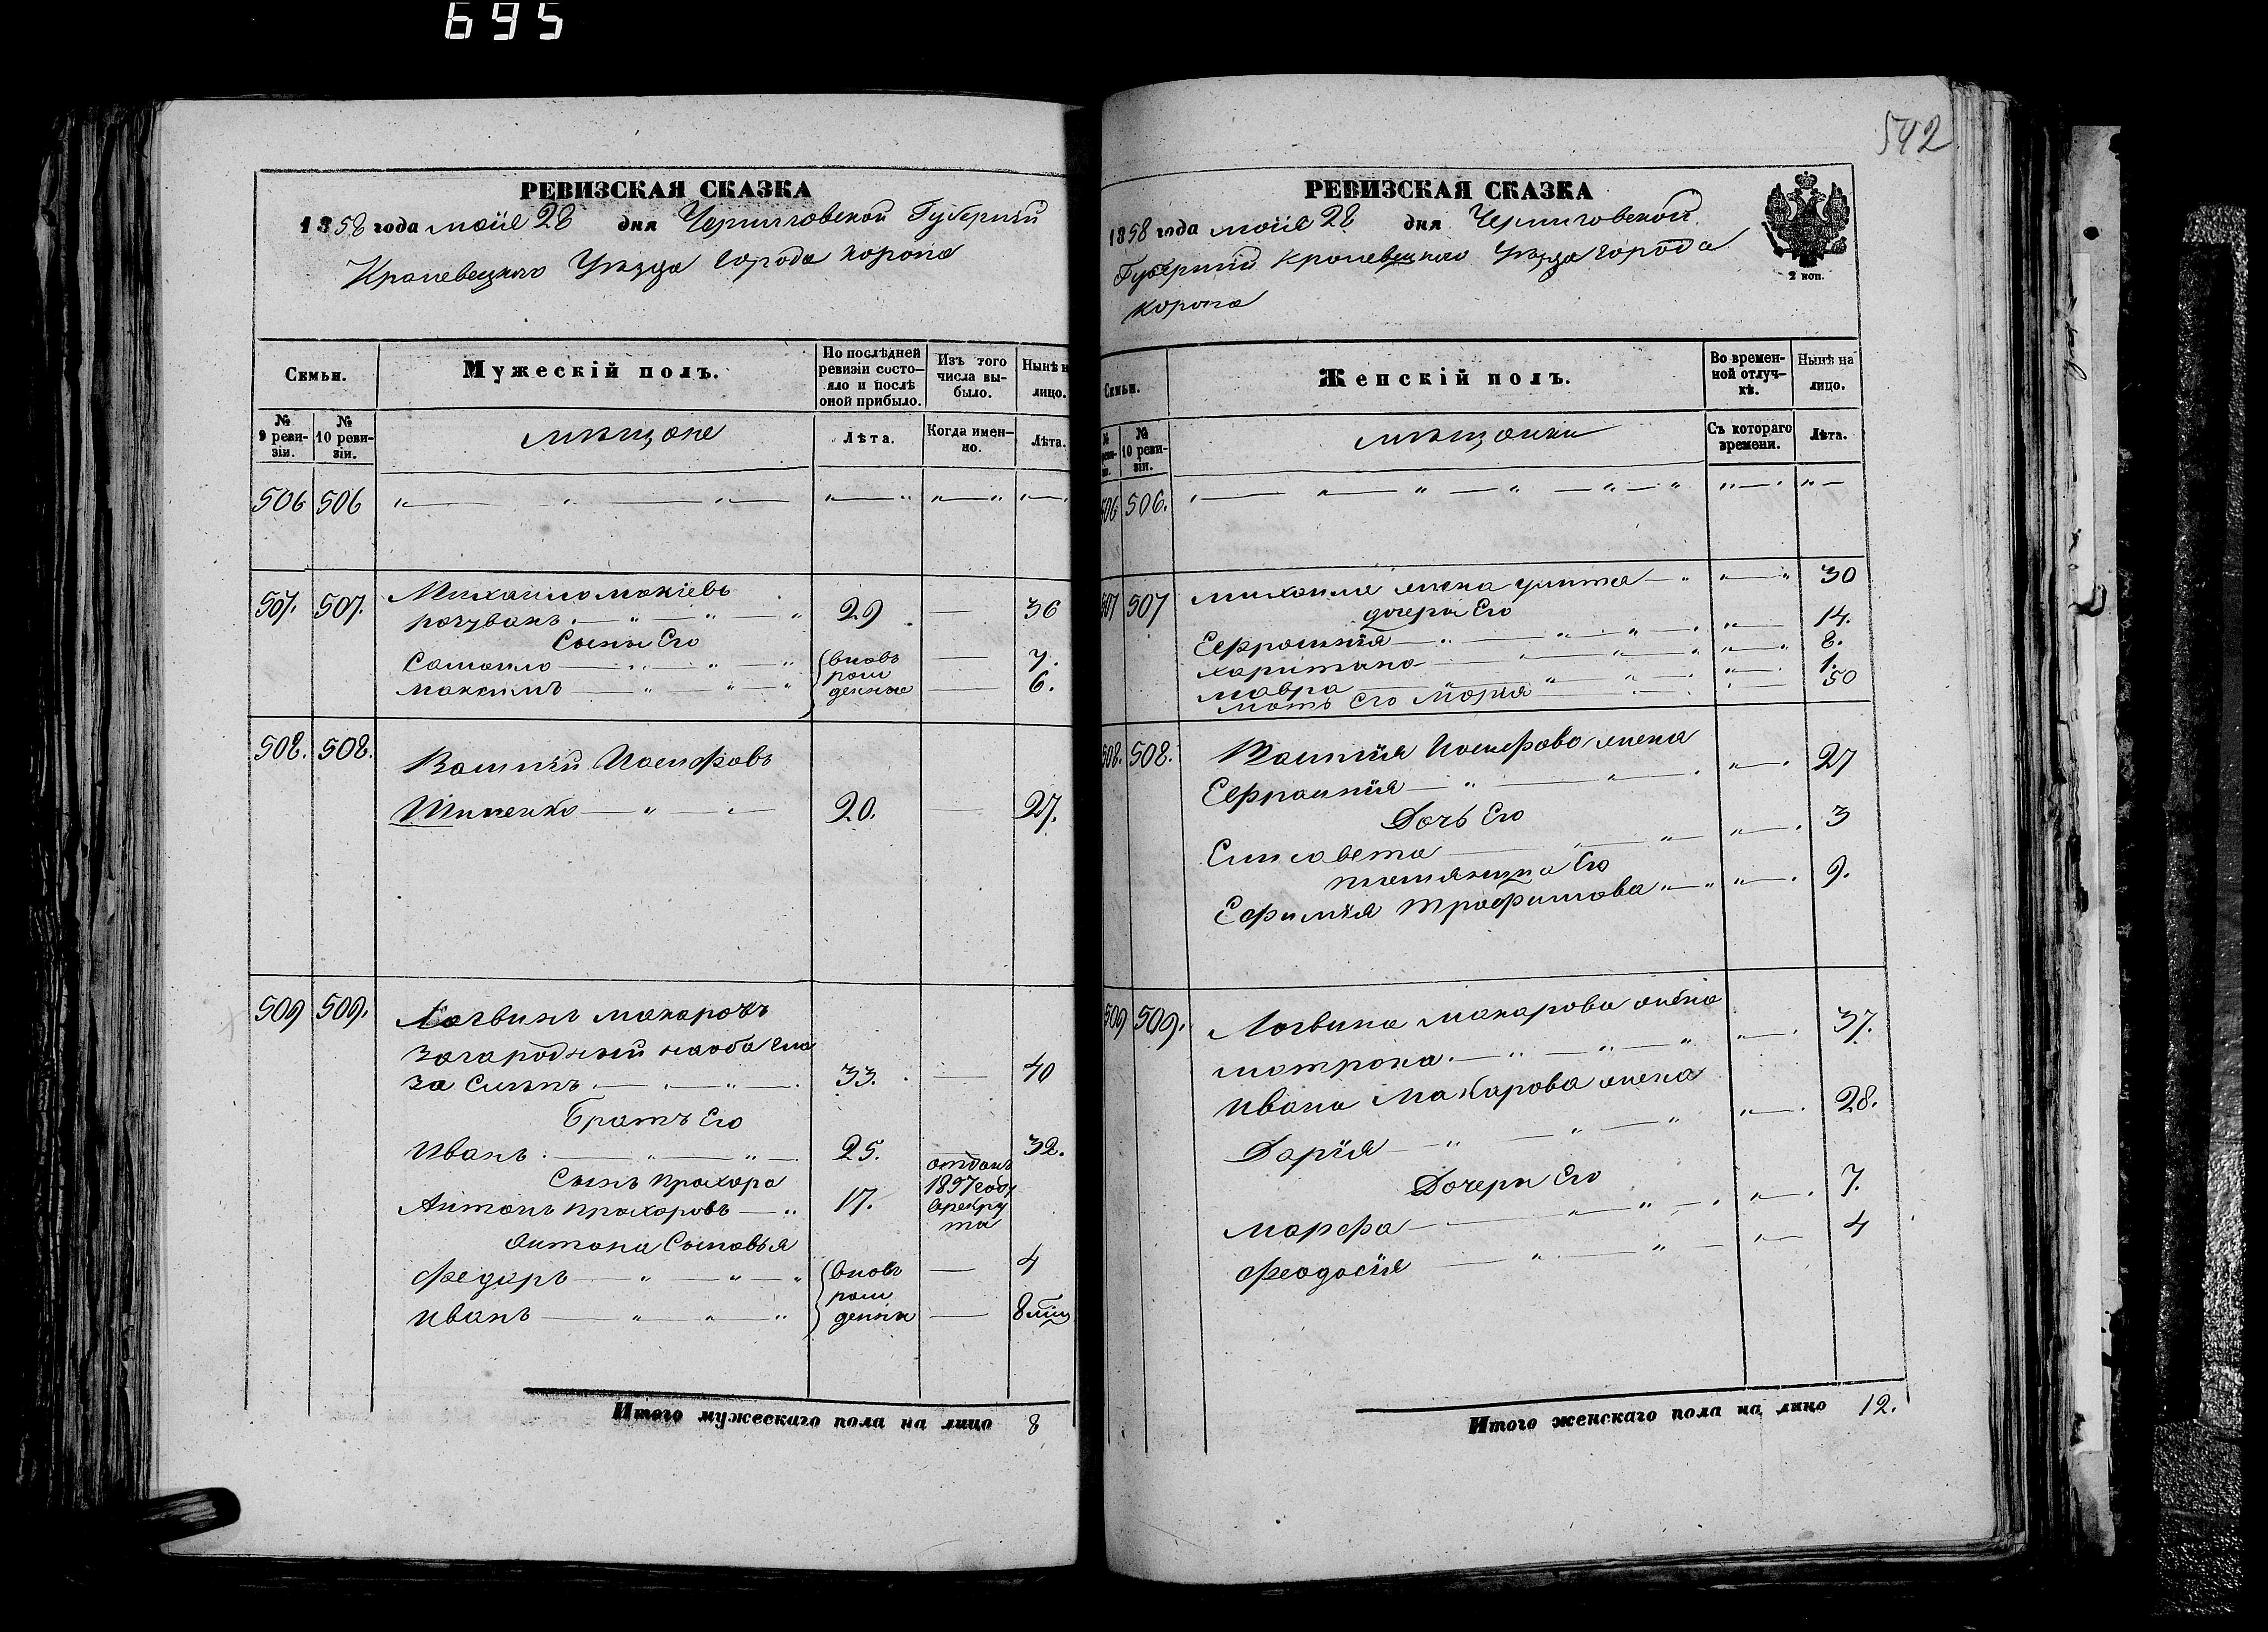 695
542
РЕВИЗСКАЯ СКАЗКА
1858 года маія 28 дня Черниговской Губерніи
Кролевецкого Уѣзда города Коропа
Семьи.
Мужескій полъ.
По послѣдней ревизіи состояло и послѣ оной прибыло.
Изъ того числа выбыло.
Нынѣ н лицо.
№ 9 ревизіи.
№ 10 ревизіи.
мѣщане
Лѣта.
Когда именно.
Лѣта.
506 506 " — " — " — " — " " — " " —
507. 507. Михаило
29 — 36
Сыны Его
Самоило — " — " — " { вновь — 7.
Максимъ — " — " — " рож денные — 6.
508. 508. Василій Иосифовъ
20. — 27.
509 509. Логвинъ Макаровъ
Загородный
за Симъ — " — 33. — 40
Братъ Его
Иванъ — " — " — 25. 32.
Сынъ Прохора
Антонъ Прохоровъ — " 17. отданъ 1857 году
Антона Сыновья
Федоръ — " — " — " { вновь — 4
Иванъ — " — " — " рож денни — 8 мѣц
Итого мужескаго пола на лицо 8
РЕВИЗСКАЯ СКАЗКА
1858 года маія 28 дня Черниговской
Губерніи Кролевецкого Уѣзда города
Коропа
2 коп.
Семьи.
Женскій полъ.
Во временной отлучкѣ.
Нынѣ на лицо.
№ 10 ревизіи.
мѣщанки
Съ котораго времени.
Лѣта.
506 506. " — " — " — " — " — " " — . " —
507 507 Михаила жена Улита — " " — " 30
дочери Его
Ефросинія — " — " — " — . " — 14.
Харитина — " — " — " " — " 8.
Мавра — " — " — . " — . 1.
Мать Его Марія — . — . — 50
508. 508. Василія Иосифова жена
Ефросинія — " — " — . " — . 27
Дочь Его
Елисавета — " — " — " — . 3
племянница Его
Ефимія Трофимова " — " " — . 9.
509 509. Логвина Макарова жена
Матрона. — " — " — " — . 37.
Ивана Макарова жена
Дарія — " — " — " " — . 28.
Дочери Его
Марфа — " — " — . " — . 7.
Феодосія — " — " — " — 4
Итого женскаго пола на лицо 12.